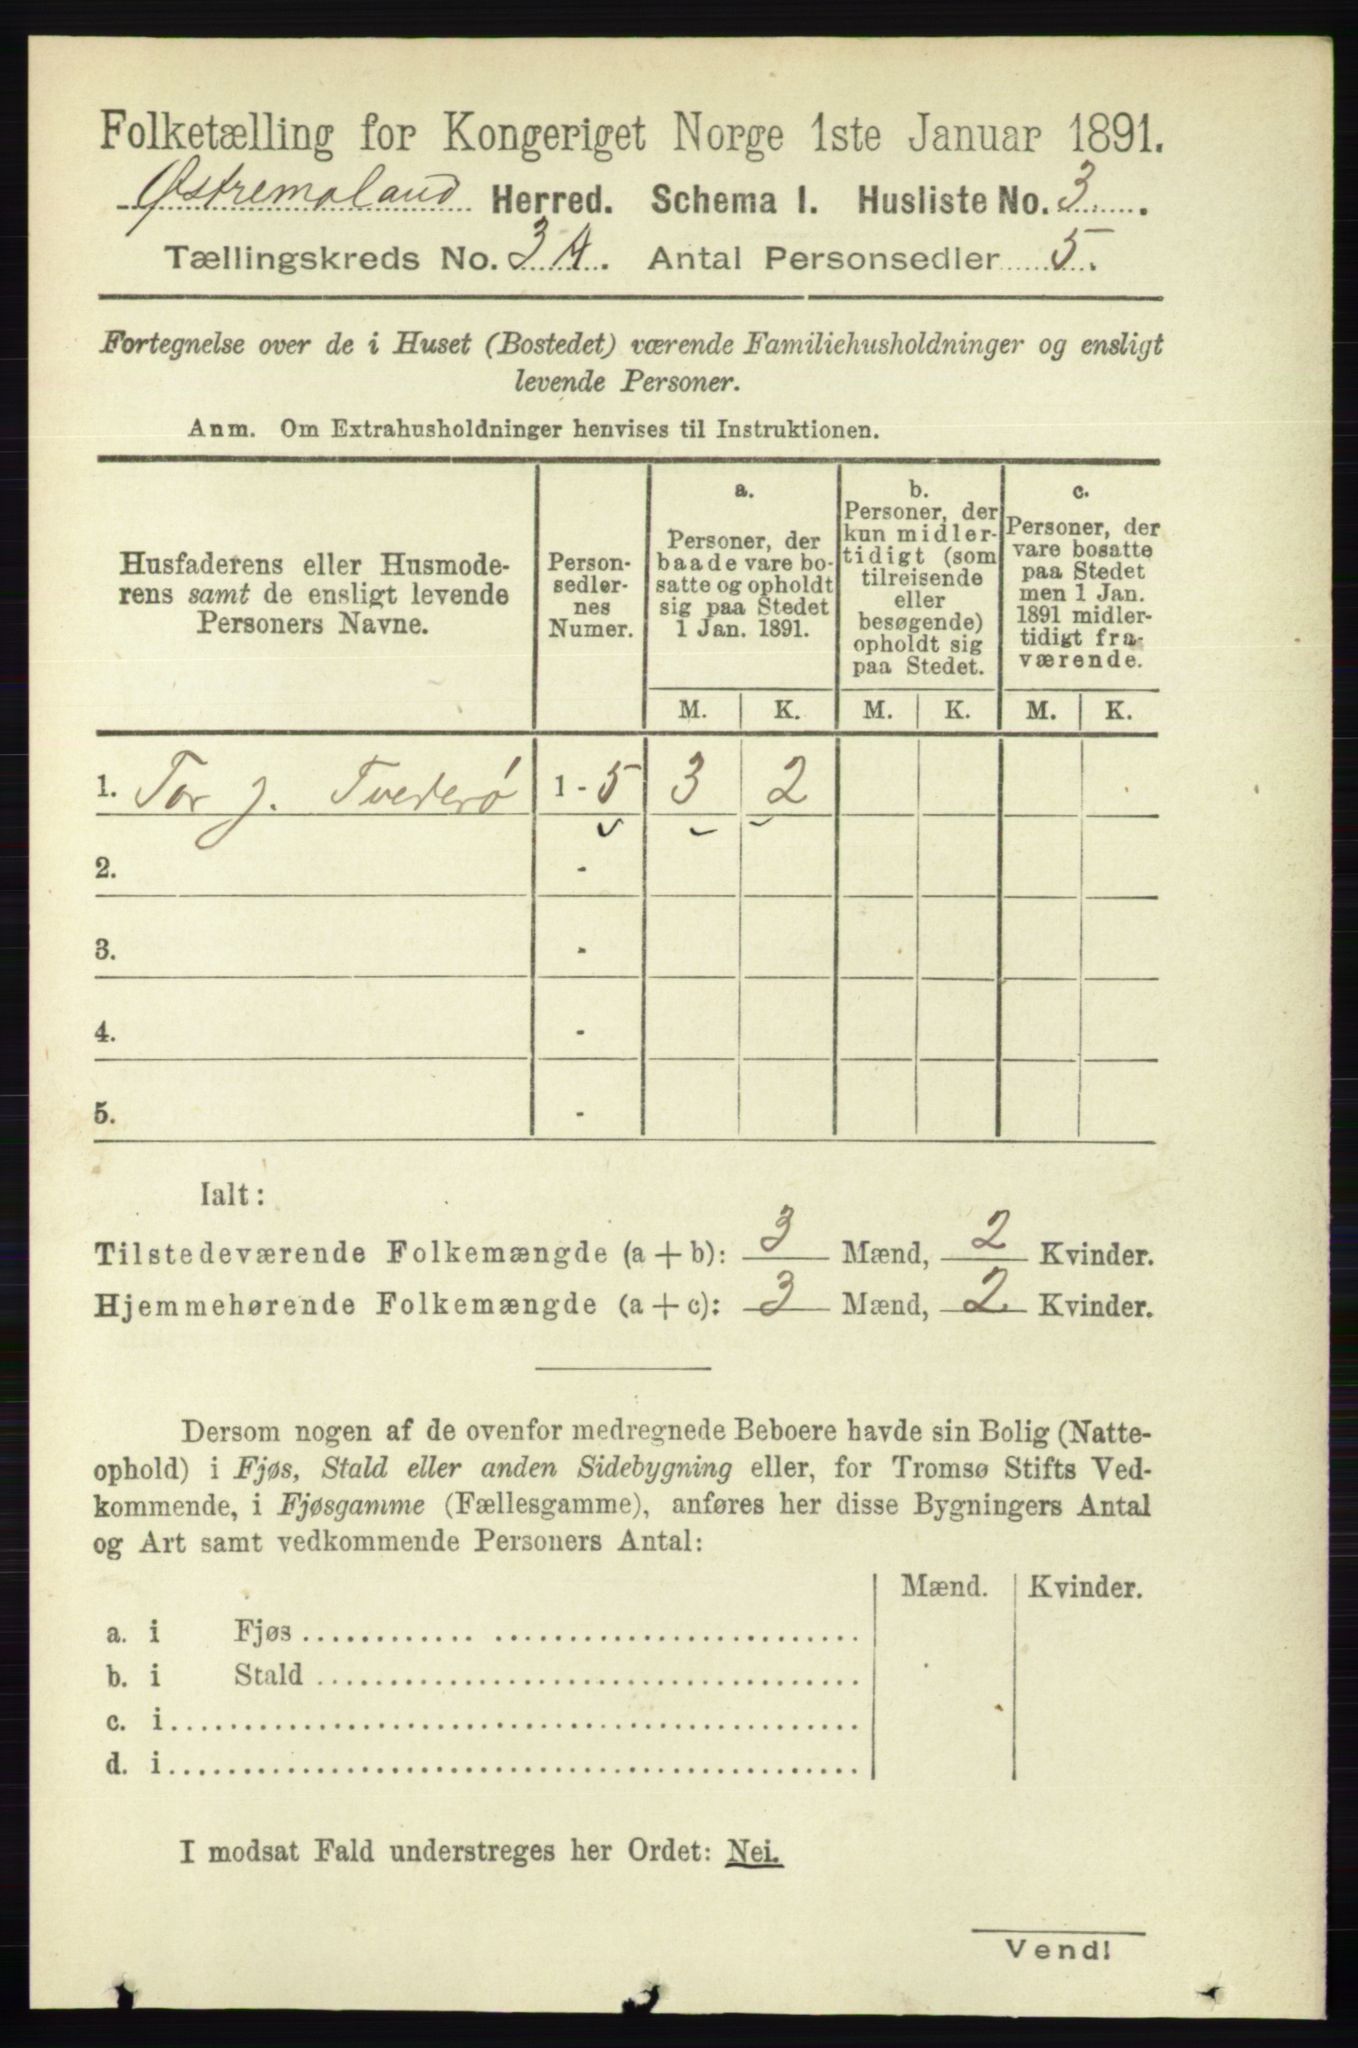 Folketælling for Kongeriget Norge 1ste Januar 1891.
Østremoland Herred. Schema I. Husliste No. 3.
Tællingskreds No. 3 A. Antal Personsedler 5.
Fortegnelse over de i Huset (Bostedet) værende Familiehusholdninger og ensligt
levende Personer.
Anm. Om Extrahusholdninger henvises til Instruktionen.
Husfaderens eller Husmode-
rens samt de ensligt levende
Personers Navne.
Person-
sedler-
nes
Numer.
a.
Personer, der
baade vare bo-
satte og opholdt
sig paa Stedet
1 Jan. 1891.
b.
Personer, der
kun midler-
tidigt (som
tilreisende
eller
besøgende)
opholdt sig
paa Stedet.
c.
Personer, der
vare bosatte
paa Stedet
men 1 Jan.
1891 midler-
tidigt fra-
værende.
M. K. M. K. M. K.
1. Tor J. Tvederø 1 - 5 3 2
2. -
3. -
4. -
5. -
Ialt:
Tilstedeværende Folkemængde (a + b): 3 Mænd, 2 Kvinder.
Hjemmehørende Folkemængde (a + c): 3 Mænd, 2 Kvinder.
Dersom nogen af de ovenfor medregnede Beboere havde sin Bolig (Natte-
ophold) i Fjøs, Stald eller anden Sidebygning eller, for Tromsø Stifts Ved-
kommende, i Fjøsgamme (Fællesgamme), anføres her disse Bygningers Antal
og Art samt vedkommende Personers Antal:
Mænd. Kvinder.
a. i Fjøs
b. i Stald
c. i
d. i
I modsat Fald understreges her Ordet: Nei.
Vend!